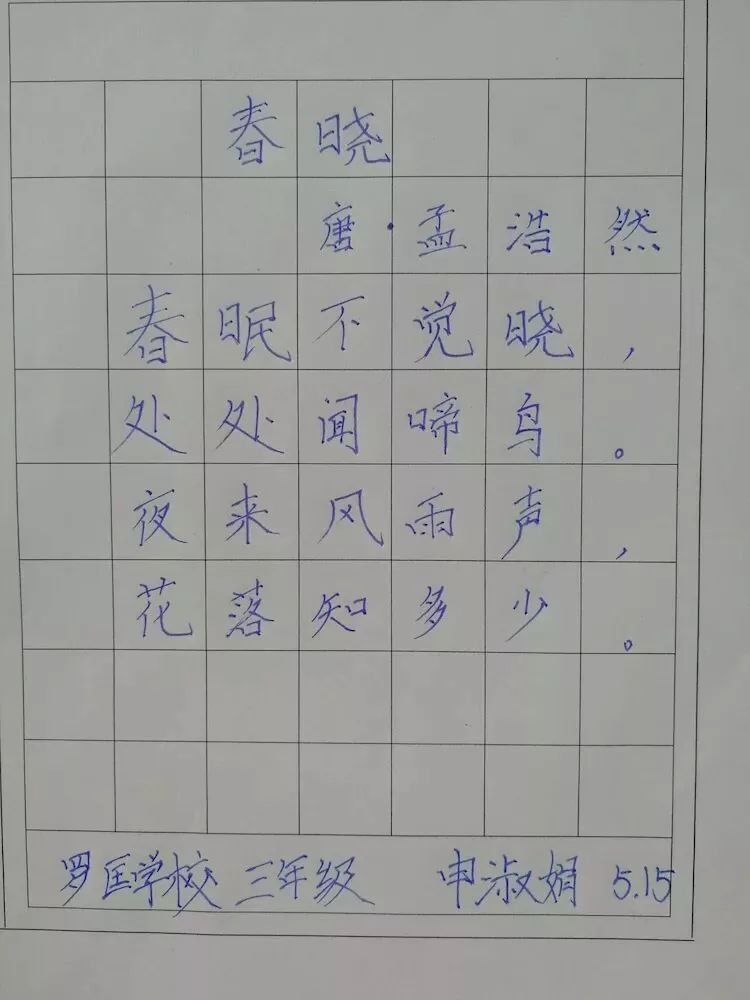 春晓
唐·孟浩然
春眠不觉晓，
处处闻啼鸟。
夜来风雨声，
花落知多少。
罗匡学校 三年级 申淑娟 5.15